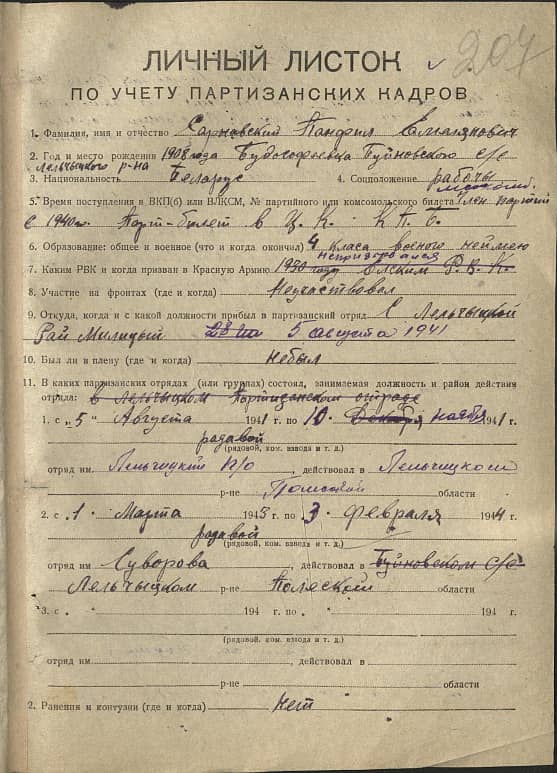 207
ЛИЧНЫЙ ЛИСТОК
ПО УЧЕТУ ПАРТИЗАНСКИХ КАДРОВ
1. Фамилия, имя и отчество Сарновский Панфил Емелянович
2. Год и место рождения 1908 года Будософыевка Буйновского с/с
Лельчыцкого р-на
3. Национальность Беларус 4. Соцположение рабочы
5. Время поступления в ВКП(б) или ВЛКСМ, № партийного или комсомольского билета Член партии
с 1940 г. Парт-билет в Ц. К. К П. Б.
6. Образование: общее и военное (что и когда окончил) 4 класа военого неймею
непризывался
7. Каким РВК и когда призван в Красную Армию 1930 году Р. В. К.
8. Участие на фронтах (где и когда) Неучаствовал
9. Откуда, когда и с какой должности прибыл в партизанский отряд С Лельчыцкой
Рай Милицыи 5 августа 1941
10. Был ли в плену (где и когда) небыл
11. В каких партизанских отрядах (или группах) состоял, занимаемая должность и район действия
отряда: в Лельчыцком Партизанском отраде
1. с „5" Августа 1941 г. по 10. Декабря ноября 1941 г.
радавой
(рядовой, ком. взвода и т. д.)
отряд им. Лельчицкий п/о, действовал в Лельчицком
р-не области
2. с 1. Марта 1943 г. по 3 Февраля 1944 г.
радавой
(рядовой, ком. взвода и т. д.)
отряд им Суворова, действовал в Буйновском с/с
Лельчыцком р-не Полеской области
3. с „ 194 г. по „ 194 г.
(рядовой, ком. взвода и т. д.)
отряд им , действовал в
р-не области
2. Ранения и контузии (где и когда) нет